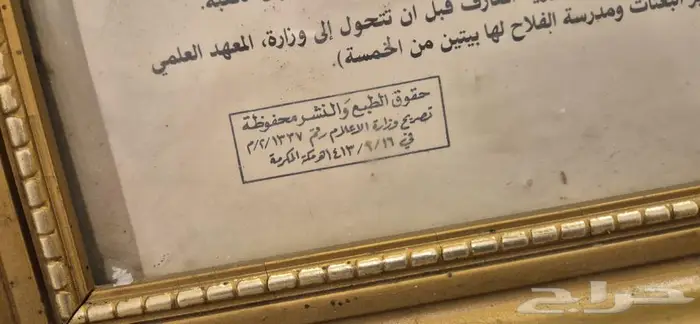 المعارف قبل ان تتحول إلى وزارة، المعهد العلمي
البعثات ومدرسة الفلاح لها بيتين من الخمسة).
حقوق الطبع والنشر محفوظة
تصريح وزارة الاعلام رقم ١٣٣٧/٢/م
في ١٤١٣/٩/١٦هـ مكة المكرمة
حراج